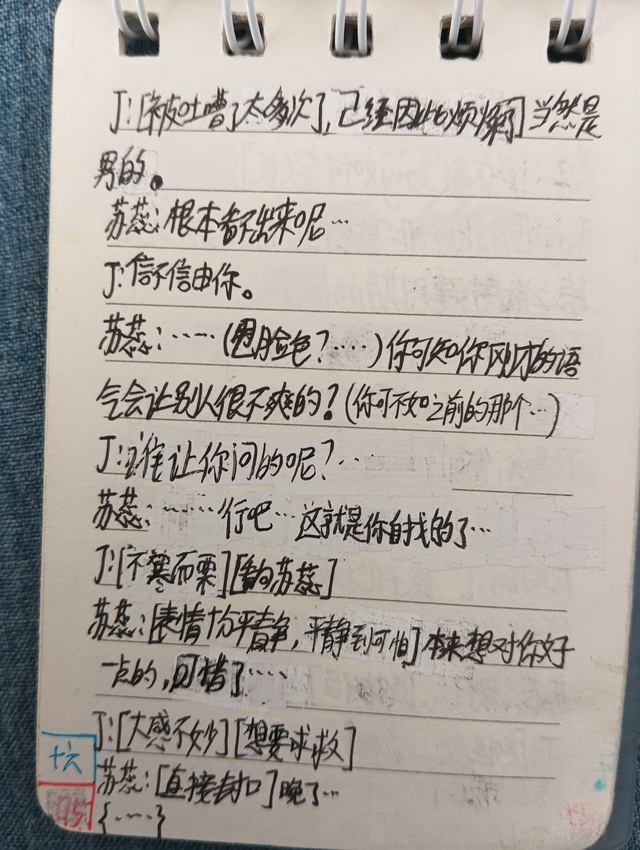 J:[被吐嘈了太多次,已经因此烦燥了]当然是
男的。
苏蕊:根本看不出来呢…
J:信不信由你。
苏蕊:……(甩脸色?……)你可知你刚才的语
气会让别人很不爽的?(你可不如之前的那个…)
J:谁让你问的呢?…
苏蕊:……行吧…这就是你自找的了…
J:[不寒而栗][看向苏蕊]
苏蕊:[表情十分平静,平静到可怕]本来想对你好
一点的,可惜了……
J:[大感不妙][想要求救]
苏蕊:[直接封口]晚了…
{……}
十六
75